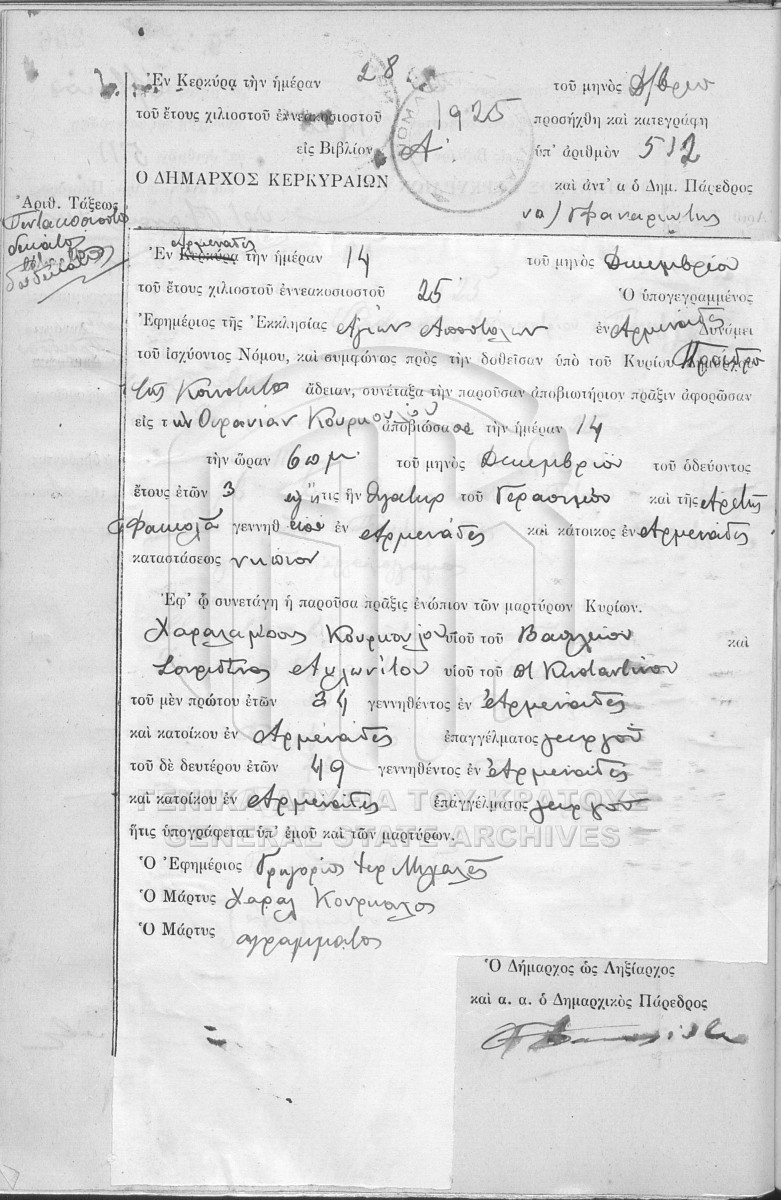 Ἐν Κερκύρᾳ τὴν ἡμέραν 28 τοῦ μηνὸς Δ/βριο
τοῦ ἔτους χιλιοστοῦ ἐννεακοσιοστοῦ 1925 προσήχθη καὶ κατεγράφη
εἰς Βιβλίον Α' ὑπ' ἀριθμὸν 512
Ο ΔΗΜΑΡΧΟΣ ΚΕΡΚΥΡΑΙΩΝ καὶ ἀντ' α ὁ Δημ. Πάρεδρος
Ἀριθ. Τάξεως
Πεντακοσιοστὸ
δέκατο
δωδέκατο
Ἐν Κερκύρᾳ Αρμενάδες τὴν ἡμέραν 14 τοῦ μηνὸς Δεκεμβρίου
τοῦ ἔτους χιλιοστοῦ ἐννεακοσιοστοῦ 25 Ὁ ὑπογεγραμμένος
Ἐφημέριος τῆς Ἐκκλησίας Αγίων Αποστόλων ἐν Αρμενάδες Δυνάμει
τοῦ ἰσχύοντος Νόμου, καὶ συμφώνως πρὸς τὴν δοθεῖσαν ὑπὸ τοῦ Κυρίου Προέδρο
της Κοινότητος ἄδειαν, συνέταξα τὴν παροῦσαν ἀποβιωτήριον πρᾶξιν ἀφορῶσαν
εἰς τ ὴν Ουρανίαν Κουρκουλου ἀποβιώσασα τὴν ἡμέραν 14
τὴν ὥραν 6 πμ. τοῦ μηνὸς Δεκεμβρίου τοῦ ὁδεύοντος
ἔτους ἐτῶν 3 ἥτις ἦν θυγάτηρ τοῦ Γερασίμου καὶ τῆς Αρετῆς
γεννηθ εισα ἐν Αρμενάδες καὶ κάτοικος ἐν Αρμενάδες
καταστάσεως νήπιον
Ἐφ' ᾧ συνετάγη ἡ παροῦσα πρᾶξις ἐνώπιον τῶν μαρτύρων Κυρίων.
Χαραλαμπος Κουρκουλου υἱοῦ τοῦ Βασιλείου καὶ
Σπυρίδωνος Αυλωνίτου υἱοῦ τοῦ Κωσταντίνου
τοῦ μὲν πρώτου ἐτῶν 34 γεννηθέντος ἐν Αρμενάδες
καὶ κατοίκου ἐν Αρμενάδες ἐπαγγέλματος γεωργοῦ
τοῦ δὲ δευτέρου ἐτῶν 49 γεννηθέντος ἐν Αρμενάδες
καὶ κατοίκου ἐν Αρμενάδες ἐπαγγέλματος γεωργοῦ
ΓΕΝΙΚΑ ΑΡΧΕΙΑ ΤΟΥ ΚΡΑΤΟΥΣ
ἥτις ὑπογράφεται ὑπ' ἐμοῦ καὶ τῶν μαρτύρων.
GENERAL STATE ARCHIVES
Ὁ Ἐφημέριος Γρηγόριος
Ὁ Μάρτυς Χαραλ Κουρκουλος
Ὁ Μάρτυς αγραμματος
Ὁ Δήμαρχος ὡς Ληξίαρχος
καὶ α. α. ὁ Δημαρχικὸς Πάρεδρος